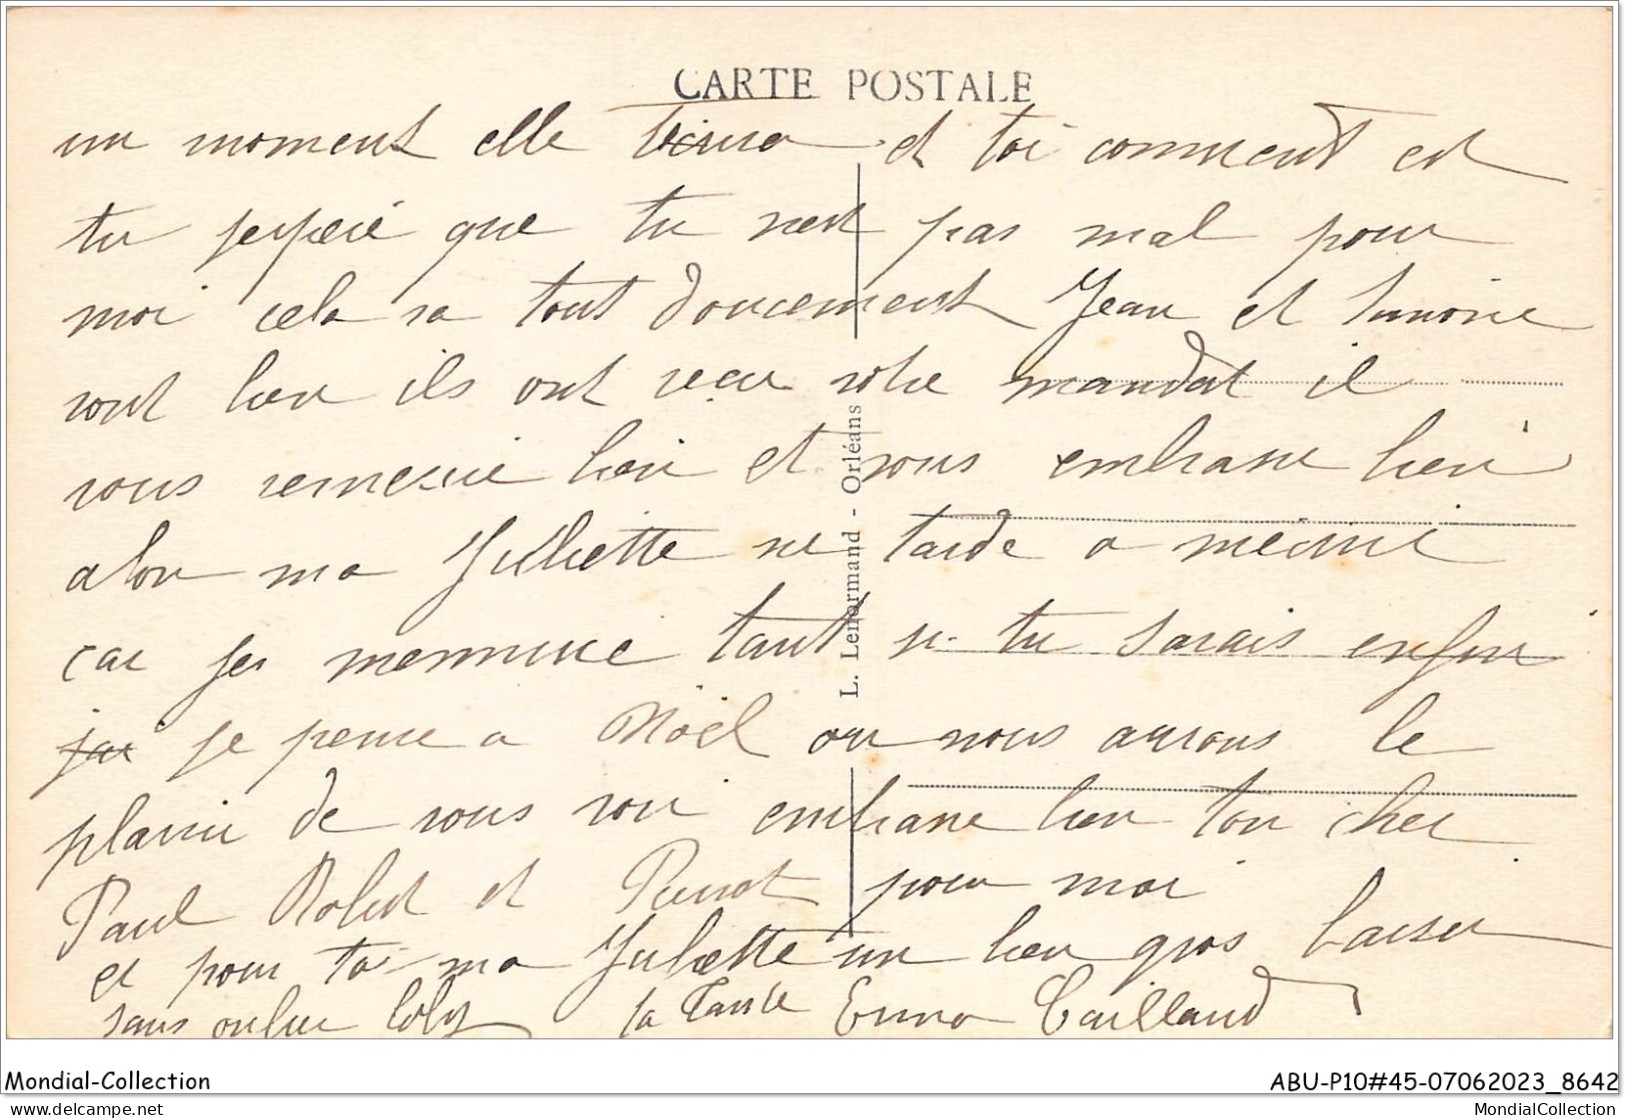 CARTE POSTALE
un moment elle et toi comment est
tu jespere que tu nest pas mal pour
moi cela va tout doucement Jean et Simone
sont bien ils ont reçu votre mandat il
vous remercie bien et vous embrasse bien
alor ma Juliette ne tarde a mécrire
car je mennuie tant si tu savais enfin
jai je pense a Nöel ou nous aurons le
plaisir de vous voir embrasse bien ton cher
Paul Robert et Pierrot pour moi
et pour toi ma Juliette un bien gros baiser
sans oublier Loby ta Tante Emma Caillaud
L. Lenormand - Orléans
Mondial-Collection
ABU-P10#45-07062023_8642
matcoll sur delcampe.net
MondialCollection